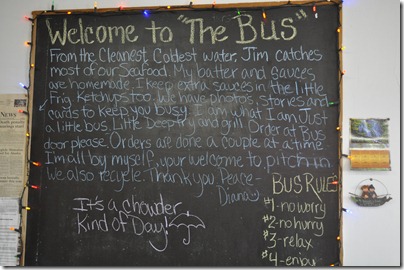 Welcome to "The Bus"
From the Cleanest, Coldest water, Jim catches
most of our Seafood. My batter and sauces
are homemade. I keep extra sauces in the little
frig. Ketchups too. We have photos, stories and
cards to keep you busy. I am what I am Just
a little bus. Little Deep fry and grill. Order at Bus
door please. Orders are done a couple at a time.
Im all by myself, your welcome to pitch in.
We also recycle. Thank you Peace-
Diana
BUS RULE
#1-no worry
#2-no hurry
#3-relax
#4-enjoy
It's a chowder
Kind of Day!
News